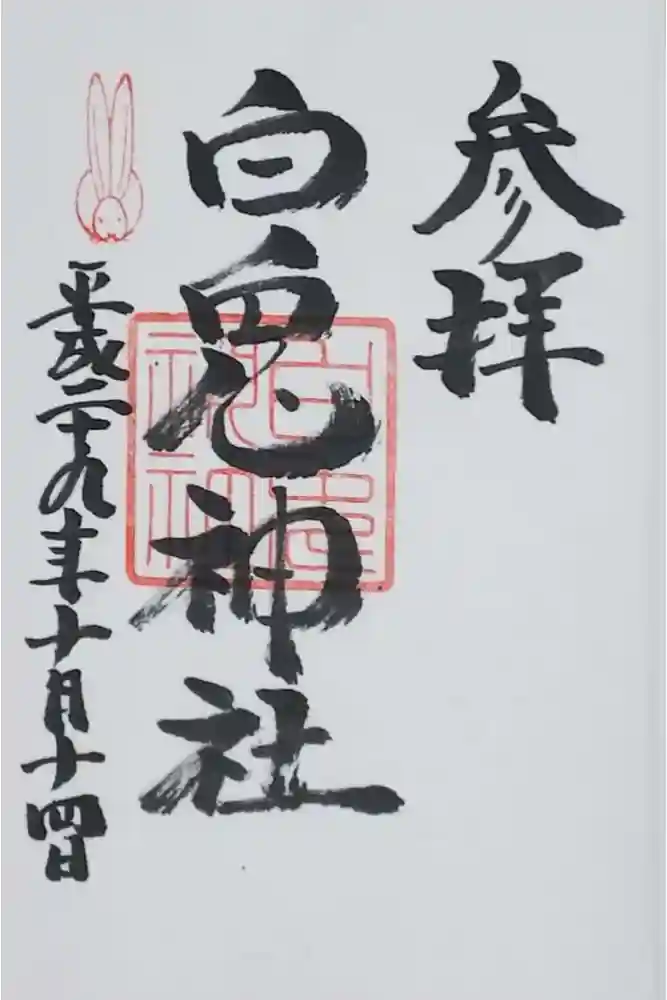 参拝
白兎神社
平成二十九年十月十四日